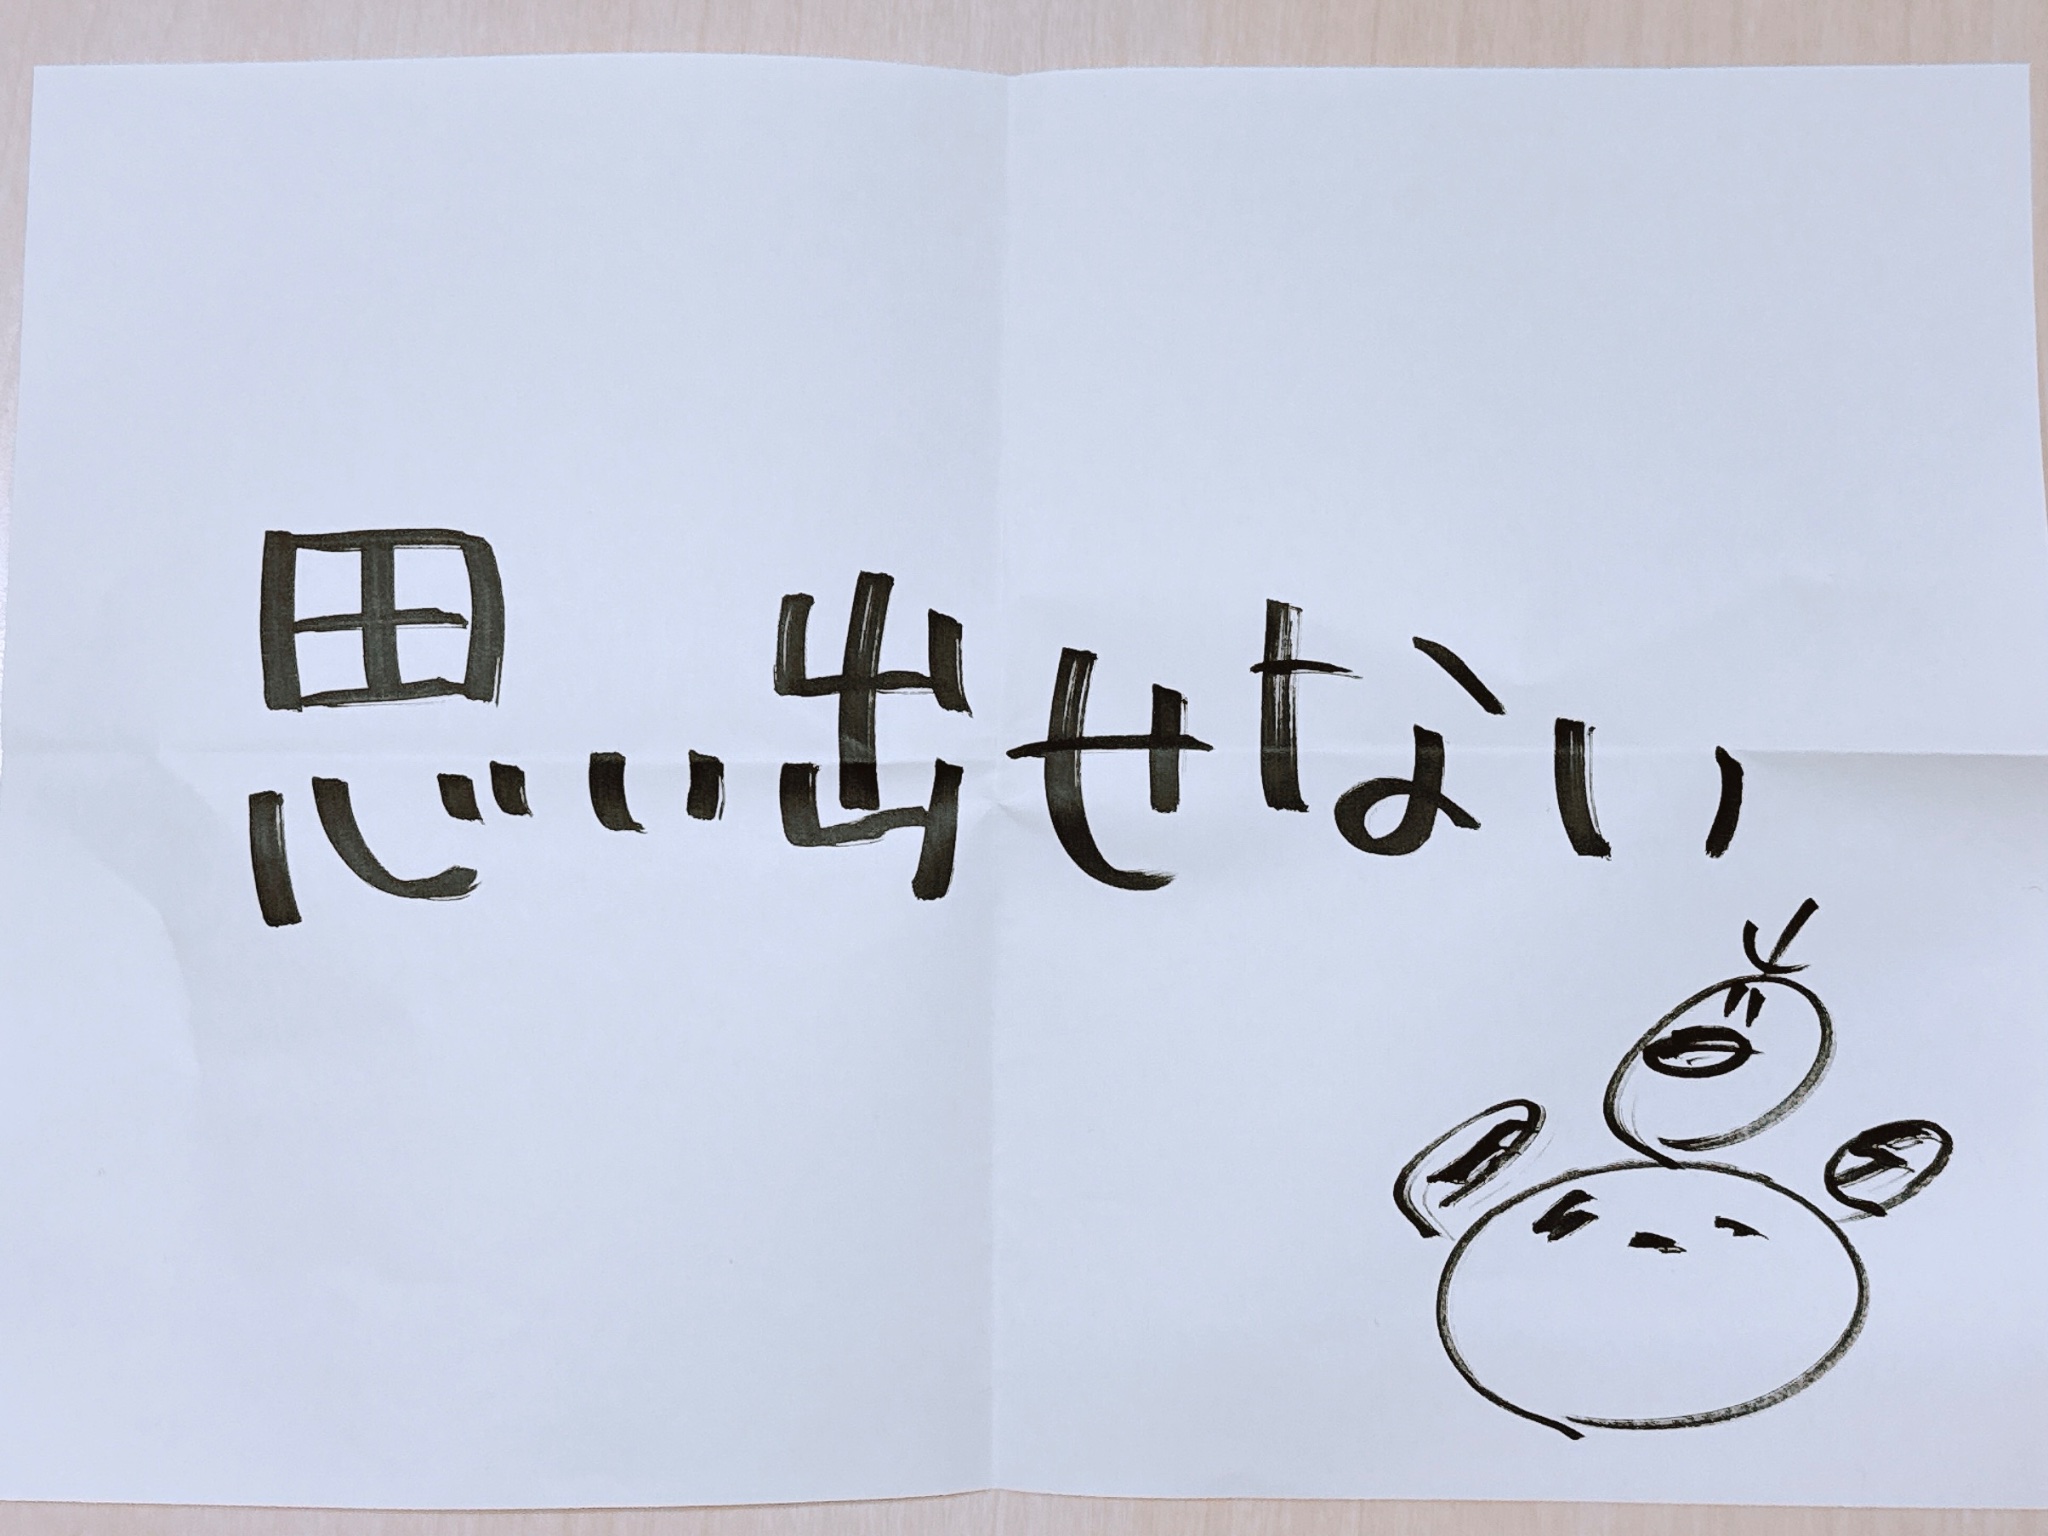 思い出せない